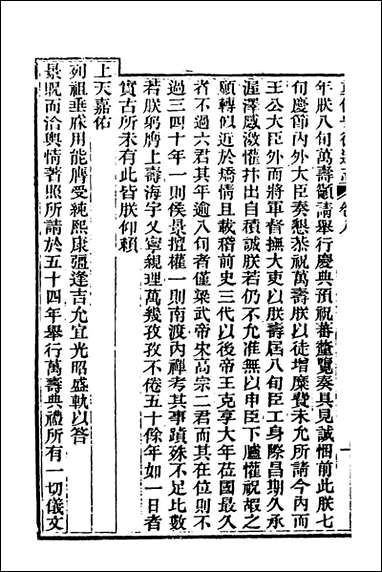 年朕八旬萬壽籲請舉行慶典預祝蕃釐覽奏具見誠悃前此朕七
旬慶節內外大臣奏懇恭祝萬壽朕以徒增糜費未允所請今內而
王公大臣外而將軍督撫大吏以朕壽屆八旬臣工身際昌期久承
渥澤感激懽忭出自積誠朕若仍不允准無以申臣下臚懽祝嘏之
願轉似近於矯情且載稽前史三代以後帝王克享大年莅國最久
者不過六君其年逾八旬者僅梁武帝宋高宗二君而其在位則不
過三四十年一則侯景擅權一則南渡內禪考其事蹟殊不足比數
若朕躬膺上壽海宇乂寧親理萬幾孜孜不倦五十餘年如一日者
實古所未有此皆朕仰賴
上天嘉佑
列祖垂庥用能膺受純熙康彊逢吉允宜光昭盛軌以答
景貺而洽輿情著照所請於五十四年舉行萬壽典禮所有一切儀文